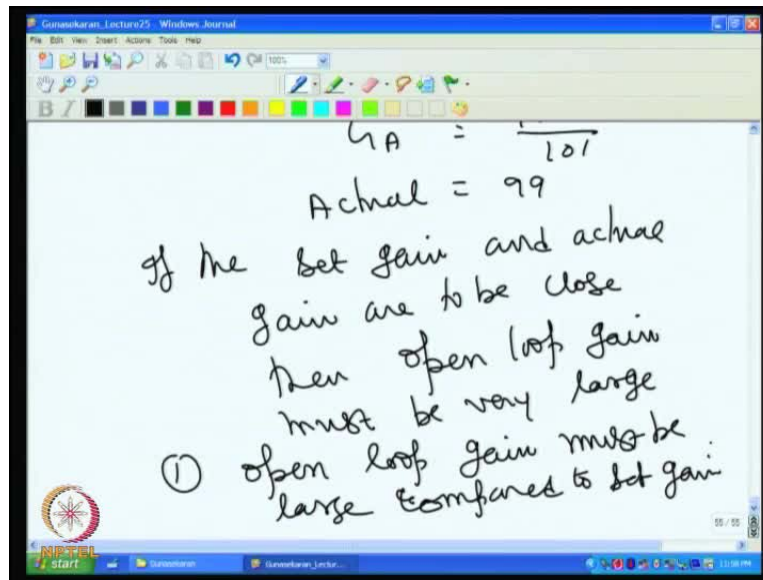 Gunasekaran_Lecture25 - Windows Journal
File Edit View Insert Actions Tools Help
100%
B I
G A =
101
Actual = 99
If the set gain and actual
gain are to be close
then open loop gain
must be very large
① open loop gain must be
large compared to set gain
55 / 55
NPTEL
start
Gunasekaran
Gunasekaran_Lectur...
11:58 PM